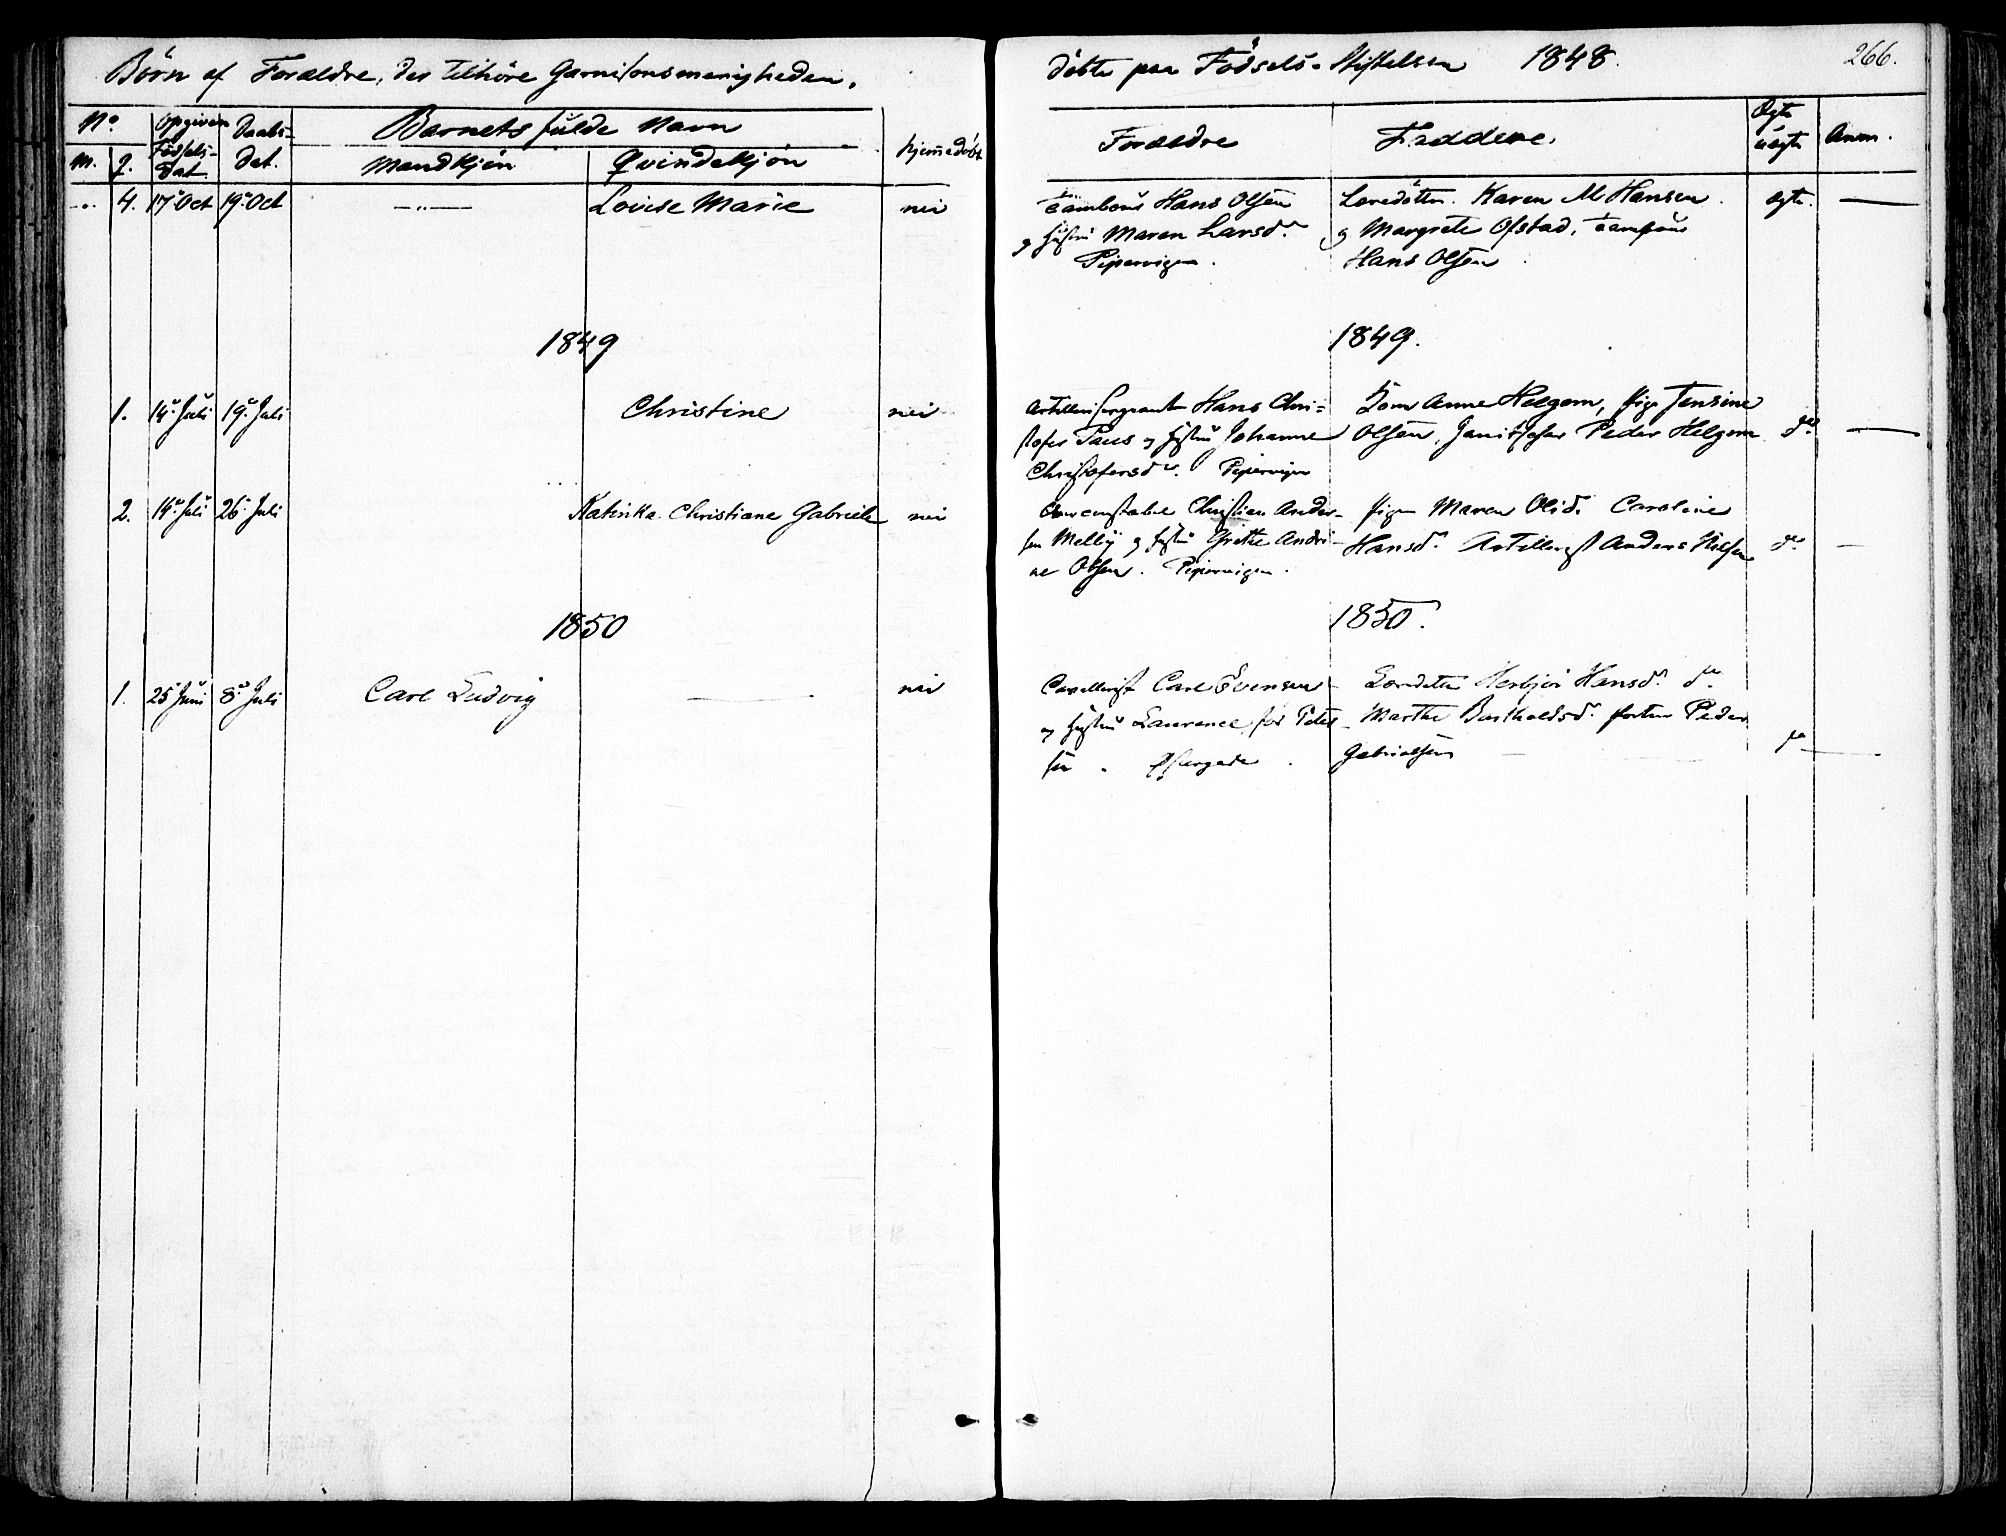 Børn af Forældre, der tilhöre Garnisonsmenigheden,
döbte paa Födsels-Stiftelsen 1848.
266.
No.
M. Q.
Opgiven Födsels-Dat.
Daabs-Dat.
Barnets fulde Navn
Mandkjön
Qvindekjön
hjemmedöbt
Forældre
Fadderne.
Ægte uægte
Anm.
4. 17 Oct 19 Oct
Louise Marie
nei
Tambour Hans Olsen
og Hustru Maren Larsd.
Pipervigen.
Karen M Hansen
og Margrete Ofstad, Tambour
Hans Olsen
ægte.
1849
1849.
1. 14 Juli 19 Juli
Christine
nei
Artillerisergeant Hans Chri=
stofer Paus og Hustru Johanne
Christofersd. Pipervigen
Kone Anne Helgem, Pige Jensine
Olsen, Janitschar Peder Helgem
do.
2. 14 Juli 26 Juli
Katinka Christiane Gabriele
nei
Christian Ander-
sen Melby og Hustru Grethe Andri-
ne Olsen. Pipervigen.
Pigen Maren Olsd. Caroline
Hansd. Artillerist Anders Nilsen
do.
1850
1850.
1. 25 Juni 8 Juli
Carl Ludvig
nei
Cavallerist Carl Svensen
og Hustru Laurence for Peter-
sen.
Hansd.
Marthe Bartholdsd. Peder
Gabrielsen